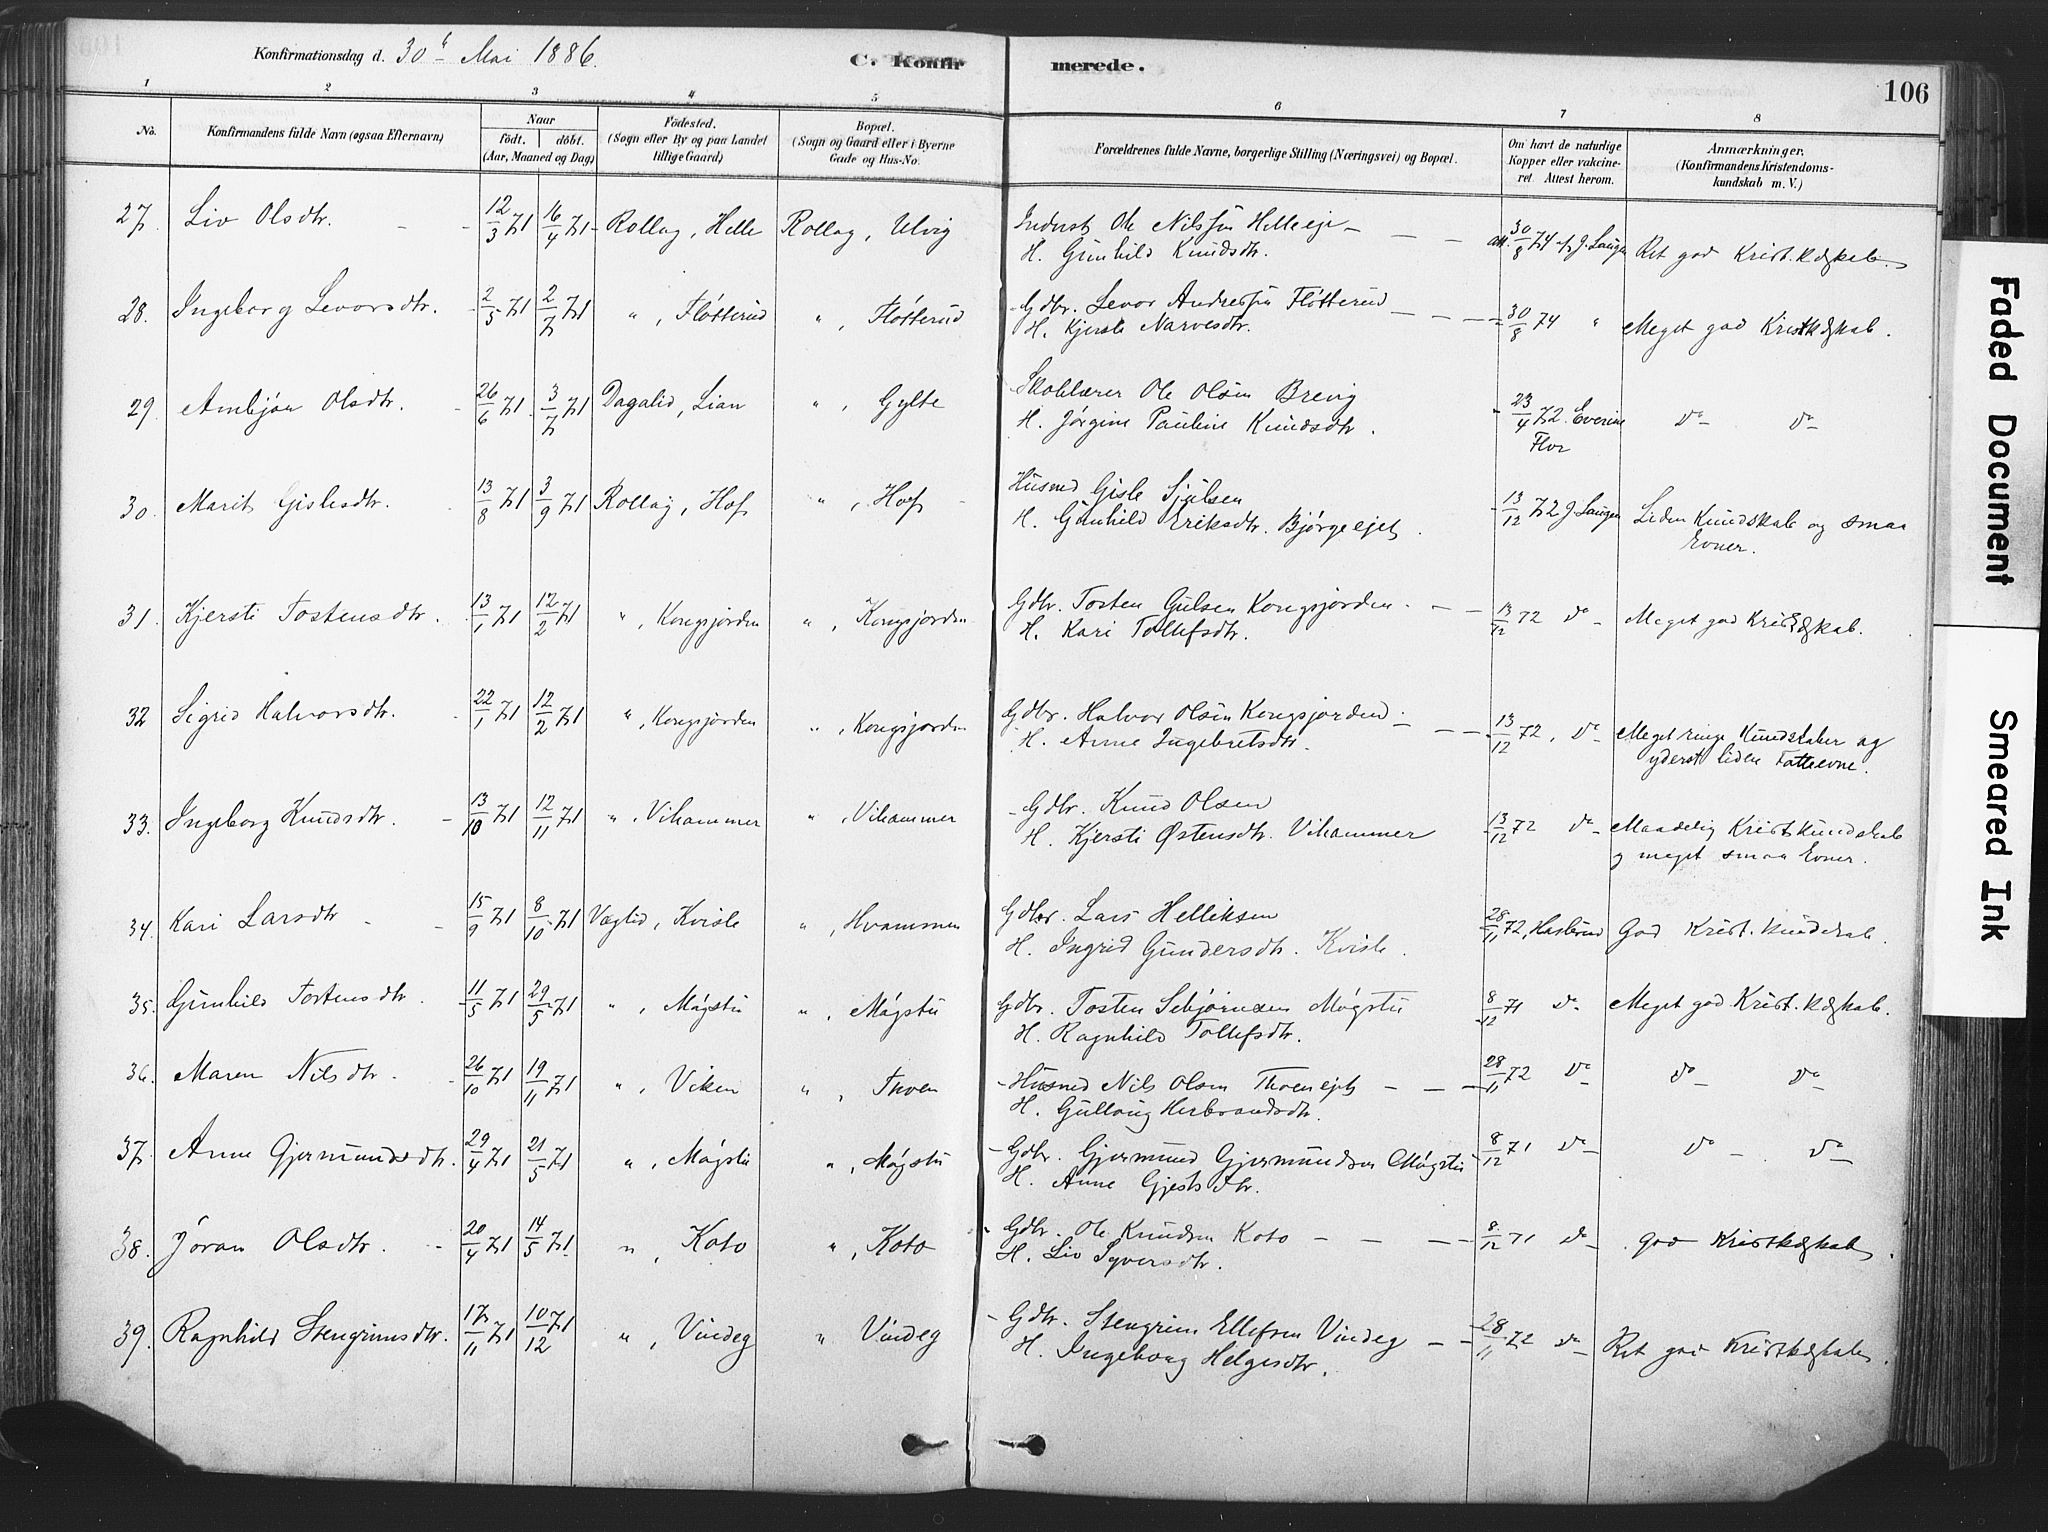 Konfirmationsdag d. 30te Mai 1886. C. Konfirmerede. 106
1 2 3 4 5 6 7 8
No. Konfirmandens fulde Navn (ogsaa Efternavn)
Naar født. døbt. (Aar, Maaned og Dag)
Fødested. (Sogn eller By og paa Landet tillige Gaard)
Bopæl. (Sogn og Gaard eller i Byerne Gade og Hus-No.
Forældrenes fulde Navne, borgerlige Stilling (Næringsvei) og Bopæl.
Om havt de naturlige Kopper eller vakcineret. Attest herom.
Anmærkninger. (Konfirmandens Kristendomskundskab m. V.)
27. Liv Olsdtr. 12/3 71 16/4 71 Rollag, Helle Rollag, Ulvig Inderst Ole Nilssøn Helleeje att. 30/8 74 af J. Laugen Ret god Krist.kdskab.
H. Gunhild Knudsdtr.
28. Ingeborg Levorsdtr. 2/5 71 2/7 71 " , Fløtterud " , Fløtterud Gdbr. Levor Andressøn Fløtterud 30/8 74 " Meget god Kristkdskab.
H. Kjersti Narvesdtr.
29. Ambjør Olsdtr. 26/6 71 3/7 71 Dagalid, Lian " , Gylte Skolelærer Ole Olsøn Brevig 23/4 72. Everine Flor do do
H. Jørgine Pauline Knudsdtr.
30. Marit Gislesdtr. 13/8 71 3/9 71 Rollag, Hof " , Hof Husmd Gisle Sjulsen 13/12 72 J. Laugen Liden Kundskab og smaa Evner.
H. Gunhild Eriksdtr. Bjørgeejet.
31. Kjersti Tostensdtr. 13/1 71 12/2 71 " , Kongsjorden " , Kongsjorden Gdbr. Tosten Gulsen Kongsjorden. 13/12 72 do Meget god Kristkdskab.
H. Kari Tollefsdtr.
32 Sigrid Halvorsdtr. 22/1 71 12/2 71 " , Kongsjorden " , Kongsjorden Gdbr. Halvor Olsen Kongsjorden. 13/12 72, do Meget ringe Kundskaber og yderst liden Fatteevne.
H. Anne Ingebretsdtr.
33. Ingeborg Knudsdtr. 13/10 71 12/11 71 " , Vihammer " , Vihammer Gdbr. Knud Olsen 13/12 72 do Maadelig Kristkundskab og meget smaa Evner.
H. Kjersti Østensdtr. Vihammer
34. Kari Larsdtr 15/9 71 8/10 71 Væglid, Kvisle " , Hvammen Gdbr. Lars Helliksen 28/11 72, Haslerud God Krist. kundskab.
H. Ingrid Gundersdtr. Kvisle.
35. Gunhild Tostensdtr. 11/5 71 29/5 71 " , Møgstu " , Møgstu Gdbr. Tosten Sebjørnsen Møgstu 8/12 71 do Meget god Krist. kdskab.
H. Ragnhild Tollefsdtr.
36. Maren Nilsdtr. 26/10 71 19/11 71 " , Viken " , Thoen Husmd Nils Olsen Thoenejet 28/11 72 do do do
H. Gullaug Herbrandsdtr.
37. Anne Gjermundsdtr. 29/4 71 21/5 71 " , Møgstu " , Møgstu Gdbr. Gjermund Gjermundsen Møgstu 8/12 71 do do do
H. Anne Gjestsdtr.
38. Jøran Olsdtr. 20/4 71 14/5 71. " , Koto " , Koto Gdbr. Ole Knudsen Koto 8/12 71 do God Kristkdskab.
H. Liv Syversdtr.
39. Ragnhild Stengrimsdtr. 17/11 71 10/12 71 " , Vindeg " Vindeg Gdbr. Stengrim Ellefsen Vindeg 28/11 72 do Ret god Kristkdskab.
H. Ingeborg Helgesdtr.
Faded Document
Smeared Ink